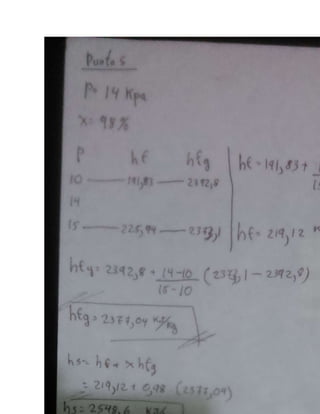 Punto 5
P= 14 Kpa
x= 98%
P hf hfg
10 — 191,83 — 2392,8
14
15 — 225,94 — 2373,1
hf= 191,83 +
hf= 219,12
hfg= 2392,8 + 14-10 / 15-10 (2373,1 - 2392,8)
hfg= 2377,04 KJ/Kg
h5= hf + x hfg
= 219,12 + 0,98 (2377,04)
h5= 2548,6